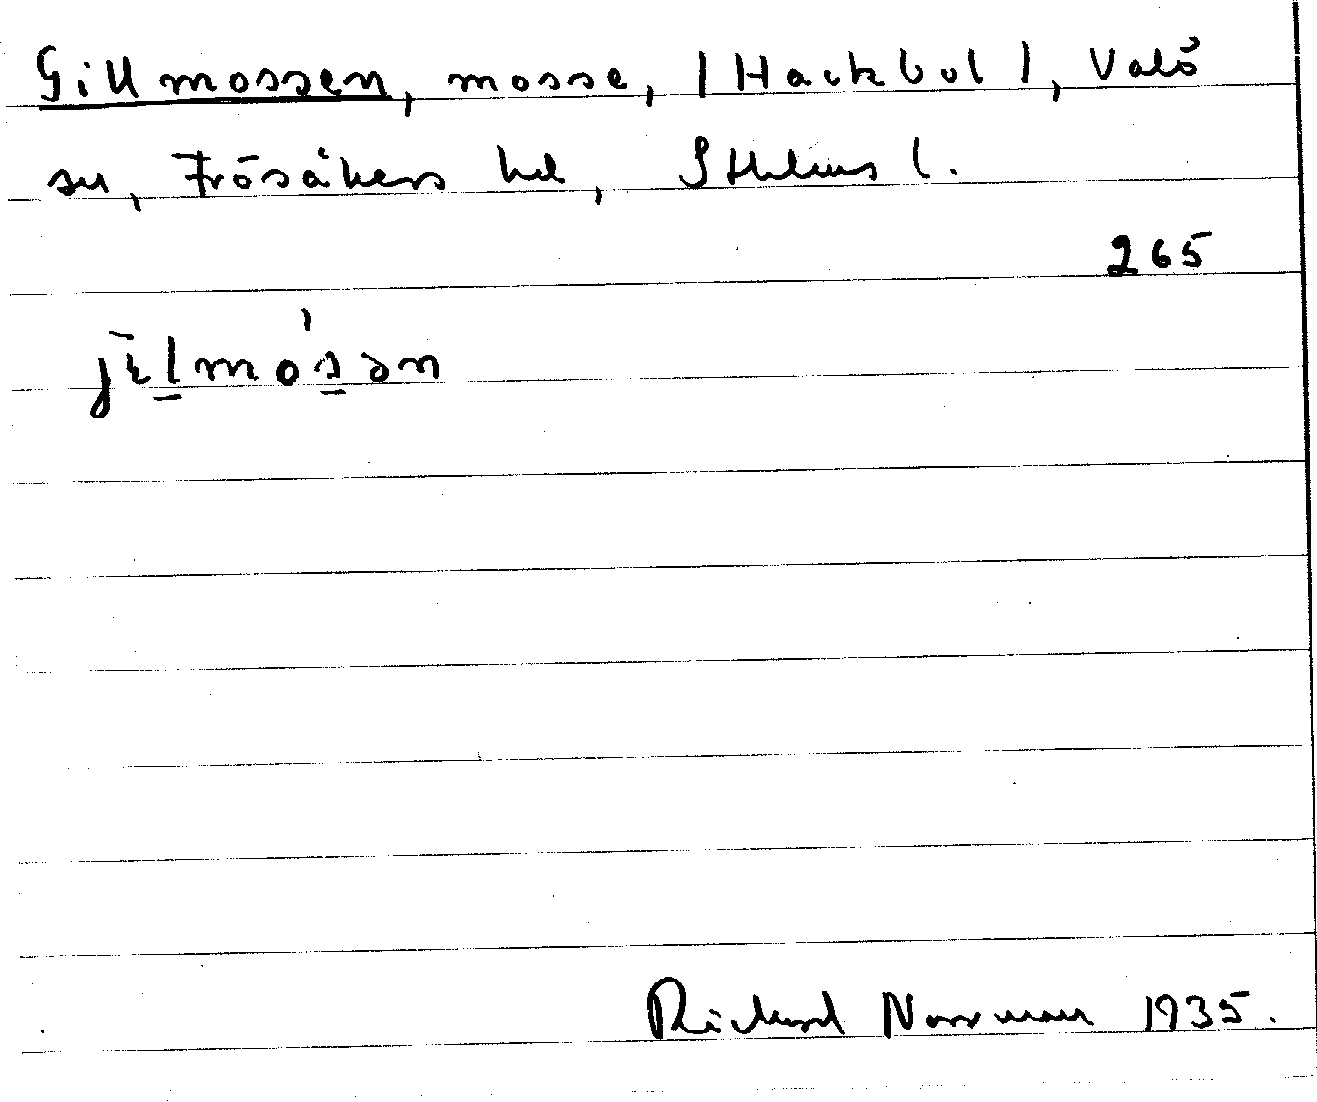 Gillmossen, mosse, (Hackbol), Valö
sn, Frösåkers hd, Sthlms l.
265
jɩ̀lmósən
Richard Norrman 1935.